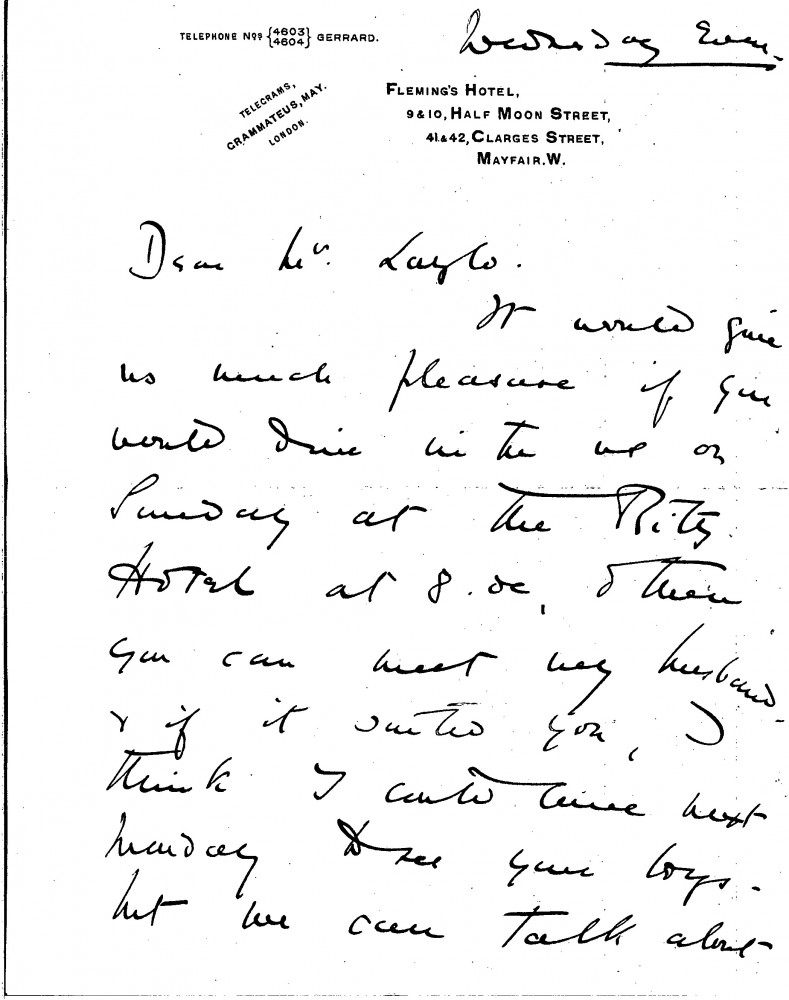 TELEPHONE Nos {4603 4604} GERRARD.
Wednesday Even.
TELEGRAMS,
GRAMMATEUS, MAY.
LONDON.
FLEMING'S HOTEL,
9 & 10, HALF MOON STREET,
41 & 42, CLARGES STREET,
MAYFAIR. W.
Dear Mr.
It would give
us much pleasure if you
would dine with us on
Sunday at the Ritz
Hotel at 8. oc, & then
you can meet my husband
& if it suited you, I
think I could come next
Monday to see your boys.
but we can talk about